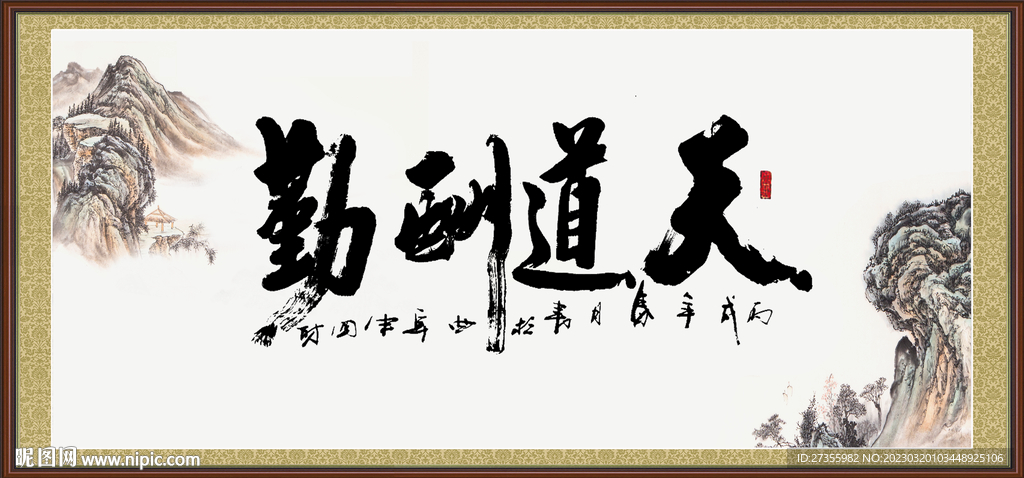 天道酬勤
丙戌年春月书于曲阜
昵图网 www.nipic.com
ID:27355982 NO:20230320103448925106